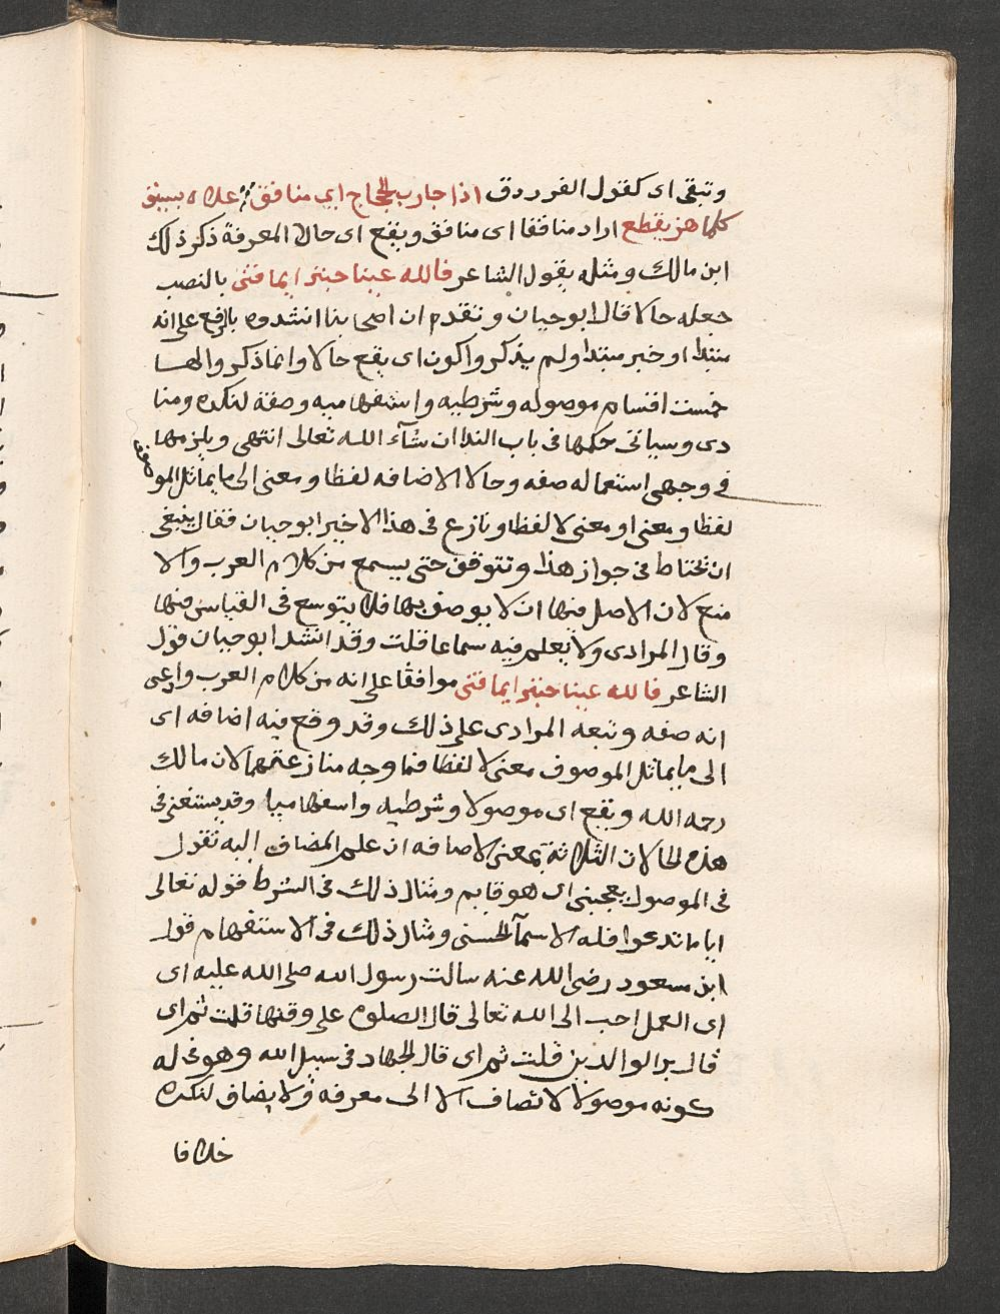 وتبقى اى كقول الفرزدق اذا حارب الحجاج اي منافق علاه بسيف
كلما هز يقطع اراد منافقا اى منافق ويقع اى حال المعرفة ذكر ذلك
ابن مالك ومثله بقول الشاعر فالله عينا حبتر ايما فتى بالنصب
جعله حالا قال ابو حيان وتقدم ان اصحابنا انشدوه بالرفع على انه
مبتدا او خبر مبتدا ولم يذكروا كون اى يقع حالا وانما ذكروا لها
خمست اقسام موصوله وشرطيه واستفهاميه وصفة لنكره ومنا
دى وسياتى حكمها فى باب الندا ان شآء الله تعالى انتهى ويلزمها
فى وجهى استعماله صفه وحالا الاضافه لفظا ومعنى الى ما يماثل الموصوف
لفظا ومعنى او معنى لا لفظا ونازع فى هذا الاخير ابو حيان فقال ينبغى
ان تحتاط فى جواز هذا وتتوقف حتى يسمع من كلام العرب والا
منع لان الاصل فيها ان لا يوصف بها فلا يتوسع فى القياس فيها
وقال المرادى ولا يعلم فيه سماعا قلت وقد انشد ابو حيان قول
الشاعر فالله عينا حبتر ايما فتى موافقا على انه من كلام العرب وادعى
انه صفه وتبعه المرادى على ذلك وقد وقع فيه اضافه اى
الى ما يماثل الموصوف معنى لا لفظا فما وجه منازعتهما لابن مالك
رحمه الله ويقع اى موصولا وشرطيه واستفهاميا وقد يستغنى فى
هذه الحالات الثلاثة بمعنى الاضافه ان علم المضاف اليه تقول
فى الموصول يعجبنى اى هو قايم ومثال ذلك فى الشرط قوله تعالى
ايا ما تدعوا فله الاسمآ الحسنى ومثال ذلك فى الاستفهام قول
ابن مسعود رضى الله عنه سالت رسول الله صلى الله عليه اى
اى العمل احب الى الله تعالى قال الصلوه على وقتها قلت ثم اى
قال بر الوالدين قلت ثم اى قال الجهاد فى سبيل الله وهو فى حاله
كونه موصولا لا تضاف الا الى معرفه ولا يضاف لنكره
خلافا